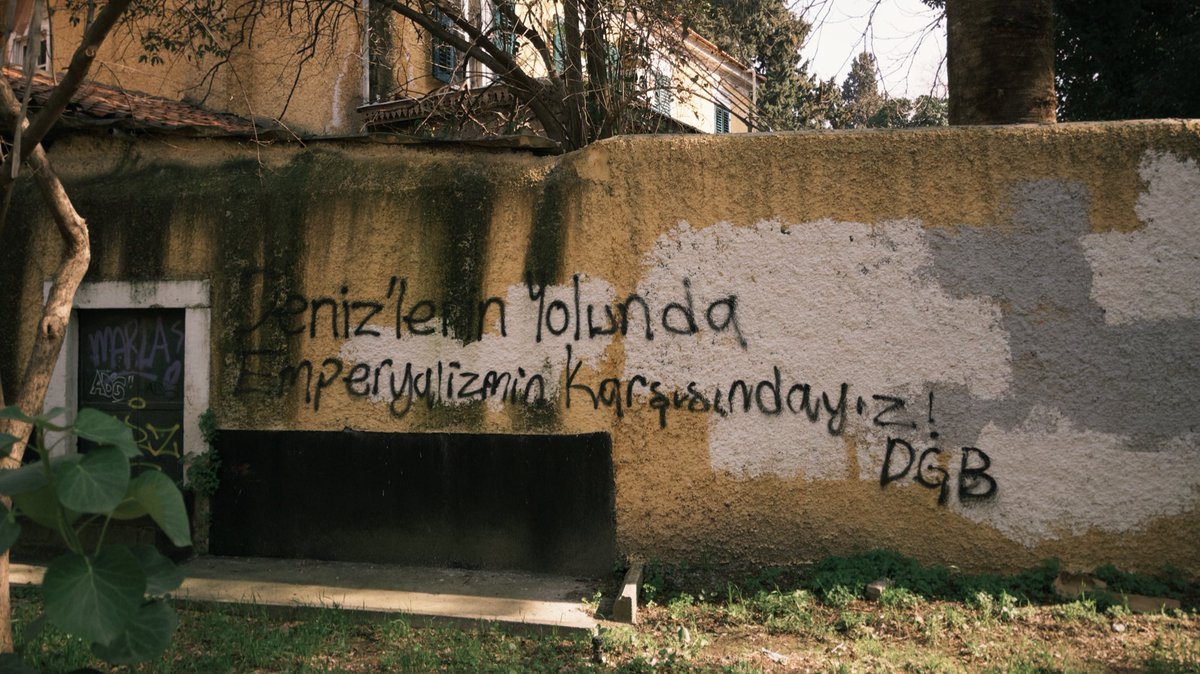 Deniz'lerin Yolunda
Emperyalizmin Karşısındayız!
DGB
MARLAS
ADS"